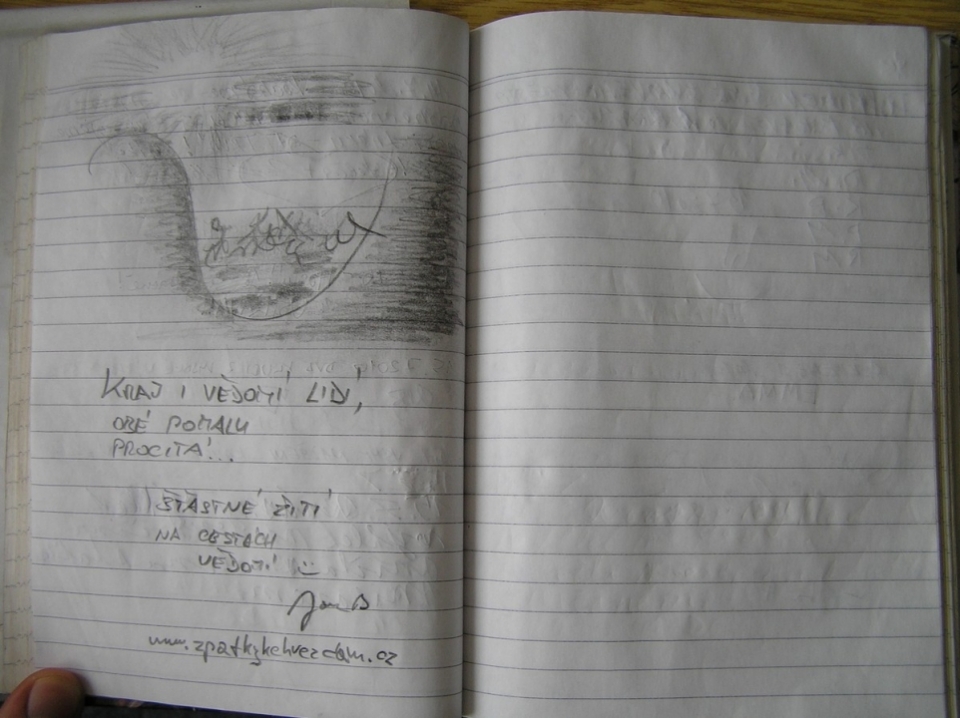 KRAJ I VĚDOMÍ LIDÍ,
OBÉ POMALU
PROCITÁ!...
ŠŤASTNÉ ŽITÍ
NA CESTÁCH
VĚDOMÍ :)
Jan B
www.zpatkykehvezdam.cz